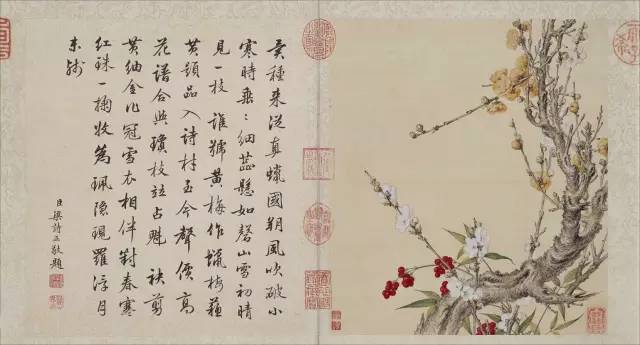 異種来從真蠟國朔風吹破小
寒時垂〻細蕋懸如磬山雪初晴
見一枝 誰號黃梅作蠟梅蘇
黃題品入詩材至今聲價高
花譜合與瓊枝竝占魁 袂剪
黃紬金化冠雪衣相伴對春寒
紅珠一掬收爲珮隱現羅浮月
未殘
臣梁詩正敬題